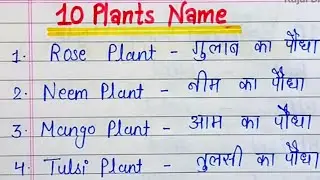 10 Plants Name
1. Rose Plant - गुलाब का पौधा
2. Neem Plant - नीम का पौधा
3. Mango Plant - आम का पौधा
4. Tulsi Plant - तुलसी का पौधा